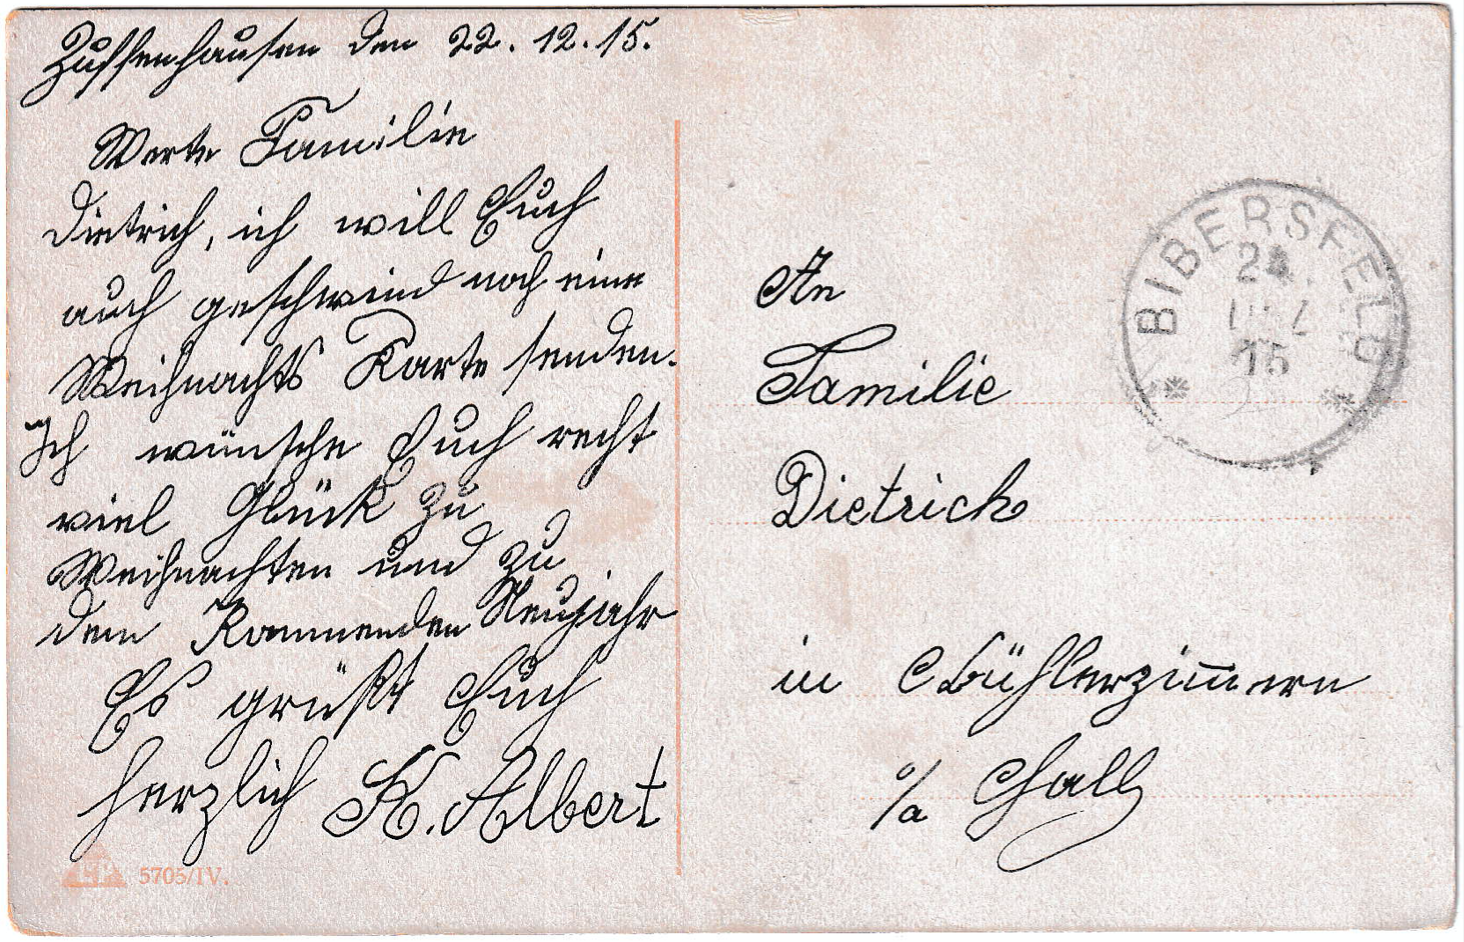 Zuffenhausen den 22. 12. 15.
Werte Familie
Dietrich, ich will Euch
auch geschwind noch eine
Weihnachts Karte senden.
Ich wünsche Euch recht
viel Glück zu
Weihnachten und zu
dem Kommenden Neujahr
Es grüßt Euch
herzlich K. Albert
5705/IV.
BIBERSFELD
24.
DEZ
15
An
Familie
Dietrich
in Bühlerzimmern
o/a Hall